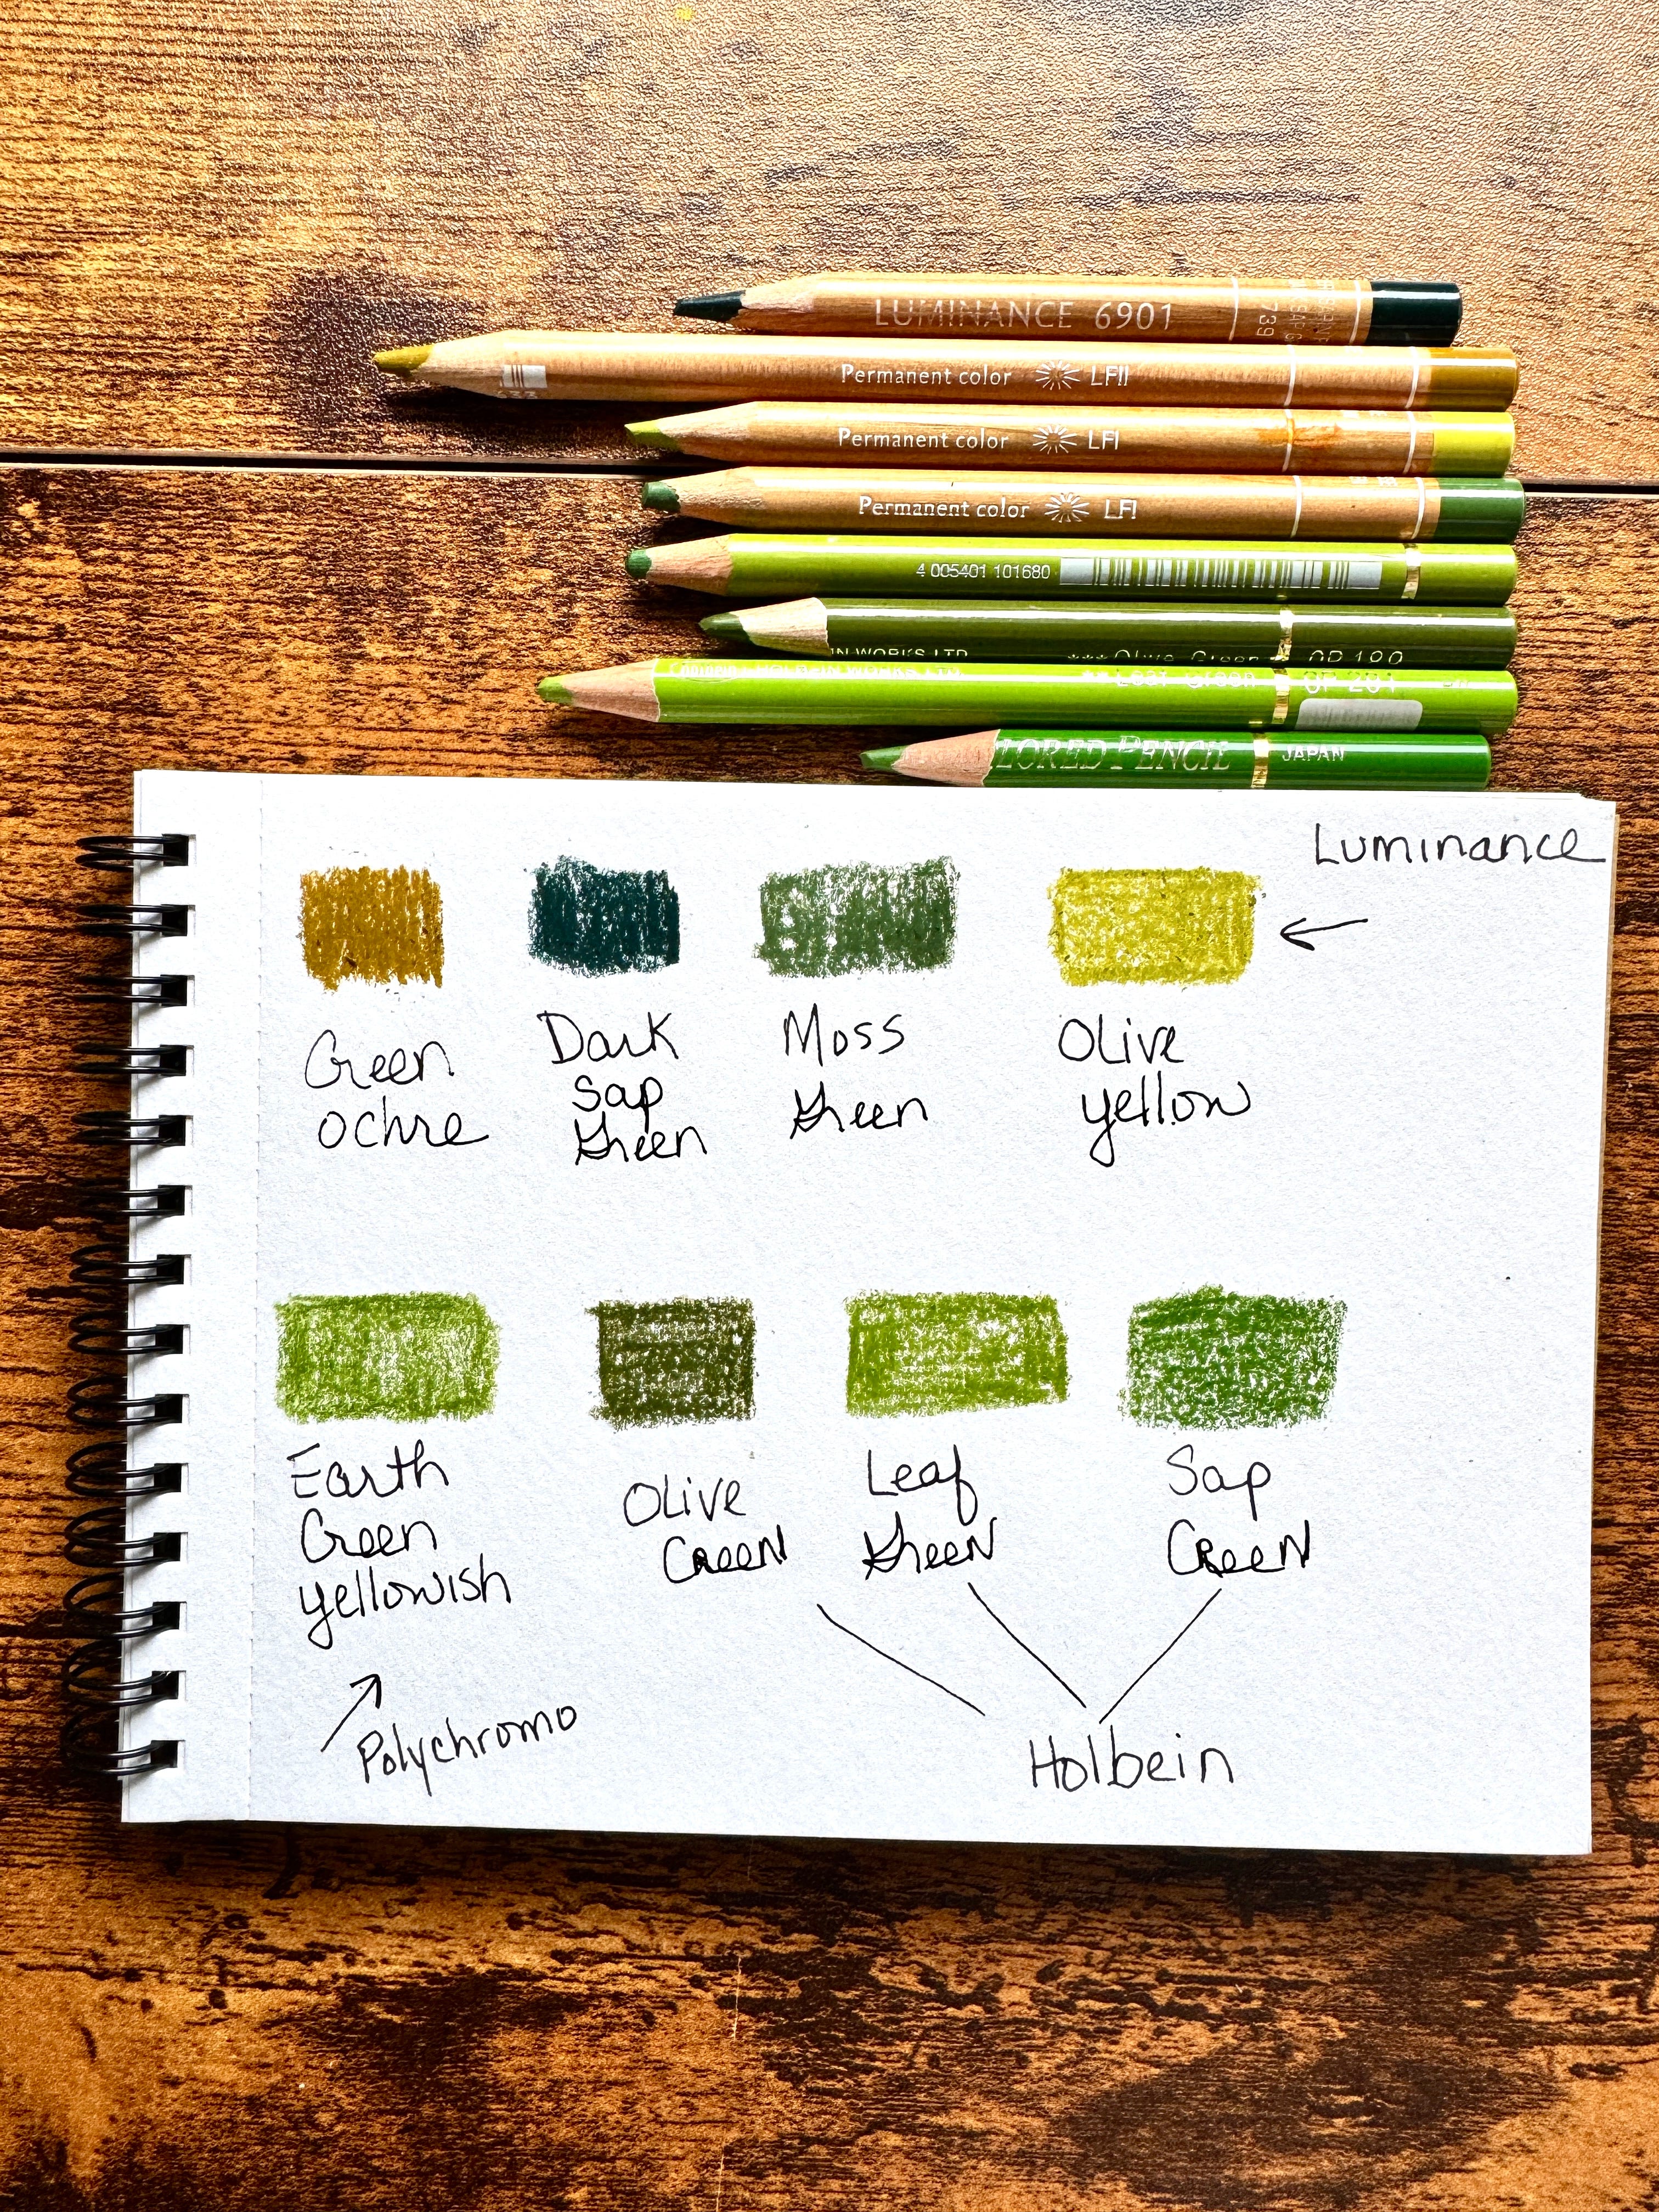 LUMINANCE 6901 739
Permanent color LFII
Permanent color LFI
Permanent color LFI
4 005401 101680
IN WORKS LTD ***Olive Green OP 190
HOLBEIN WORKS LTD **Leaf Green OP 281
LORED PENCIL JAPAN
Luminance
Green
Ochre
Dark
Sap
Green
Moss
Green
Olive
yellow
Earth
Green
yellowish
Olive
Green
Leaf
Green
Sap
Green
Polychromo
Holbein